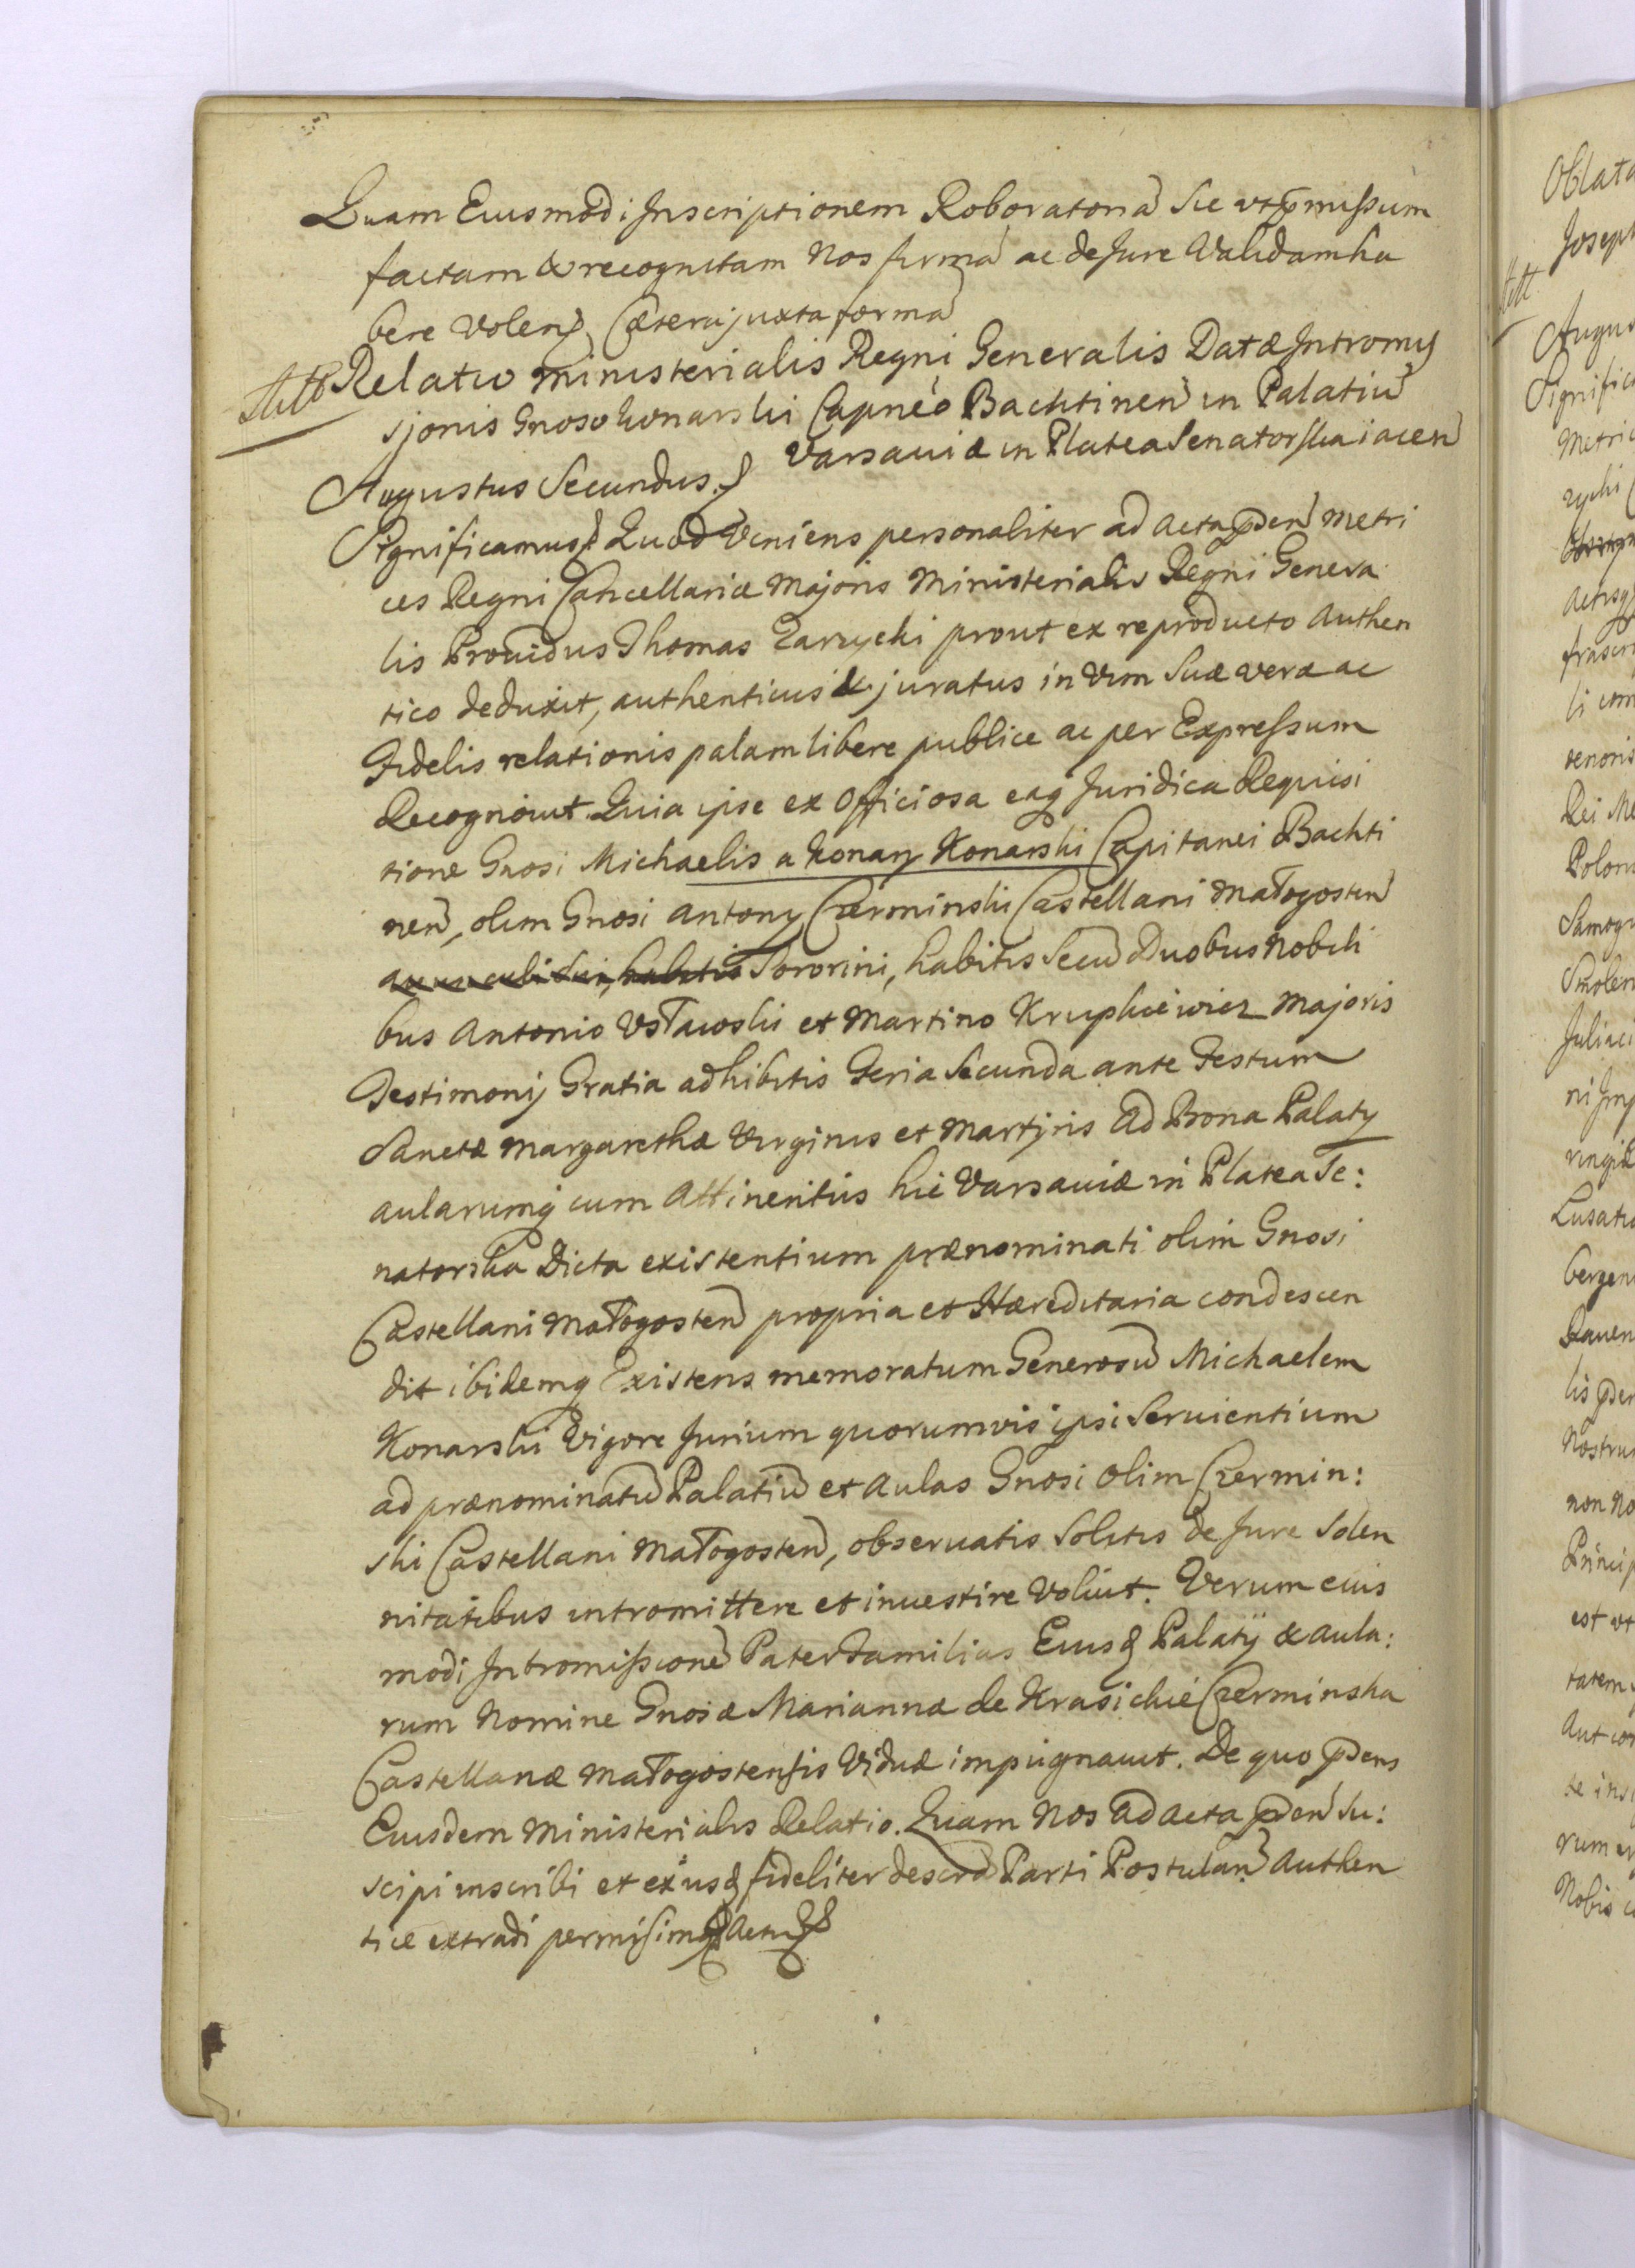 Quam Eiusmodi Inscriptionem Roboratoriã Sic vt p̃missum
factam & recognitam Nos firmã ac de Jure Validam ha
bere Volen̄, Cætera juxta formã
Relatio Ministerialis Regni Generalis Datæ Intromis
sjonis Gnoso Konarski Capneo Bachtinen̄ in Palatiũ
Varsaviæ in Platea Senatorska iacen̄
Augustus Secundus.
Significamus Quod Veniens personaliter ad acta p̃den̄ Metri
ces Regni Cancellariæ Majoris Ministerialis Regni Genera
lis Providus Thomas Zarzycki prout ex reproducto Authen
tico deduxit, authenticus & juratus in Vim Suæ veræ ac
Fidelis relationis palam libere publice ac per Expressum
Recognovit. Quia ipse ex Officiosa eaq Juridica Requisi
tione Gnosi Michaelis a Konary Konarski Capitanei Bachti
nen̄, olim Gnosi Antonij Czerminski Castellani Małogosten̄
avunculi sui, habitis Sororini, habitis Secũ Duobus Nobili
bus Antonio Vstawski et Martino Krupkiewicz Majoris
Testimonij Gratia adhibitis Feria Secunda ante Festum
Sanctæ Margarethæ Virginis et Martyris ad Bona Palatij
aularumq cum Attinentiis hic Varsaviæ in Platea Se:
natorska Dicta existentium prænominati olim Gnosi
Castellani Małogosten̄ propria et Hæreditaria condescen
dit ibidemq Existens memoratum Generosũ Michaelem
Konarski Vigore Jurium quorumvis ipsi Servientium
ad prænominatũ Palatiũ et Aulas Gnosi olim Czermin:
ski Castellani Małogosten̄, observatis Solitis de Jure Solen
nitatibus intromittere et investire Voluit. Verum eius
modi Intromissionẽ Pater Familias Eiusd Palatij & aula:
rum Nomine Gnosæ Mariannæ de Krasickie Czerminska
Castellanæ Małogostensis Viduæ impugnavit. De quo p̃dens
Eiusdem Ministerialis Relatio. Quam Nos ad acta p̃den̄ Su:
scipi inscribi et ex iisd fideliter descrō Parti Postulan̄ Authen
tice extradi permisimq Actũ
Oblata
Joseph
Augus
Significa
Metric